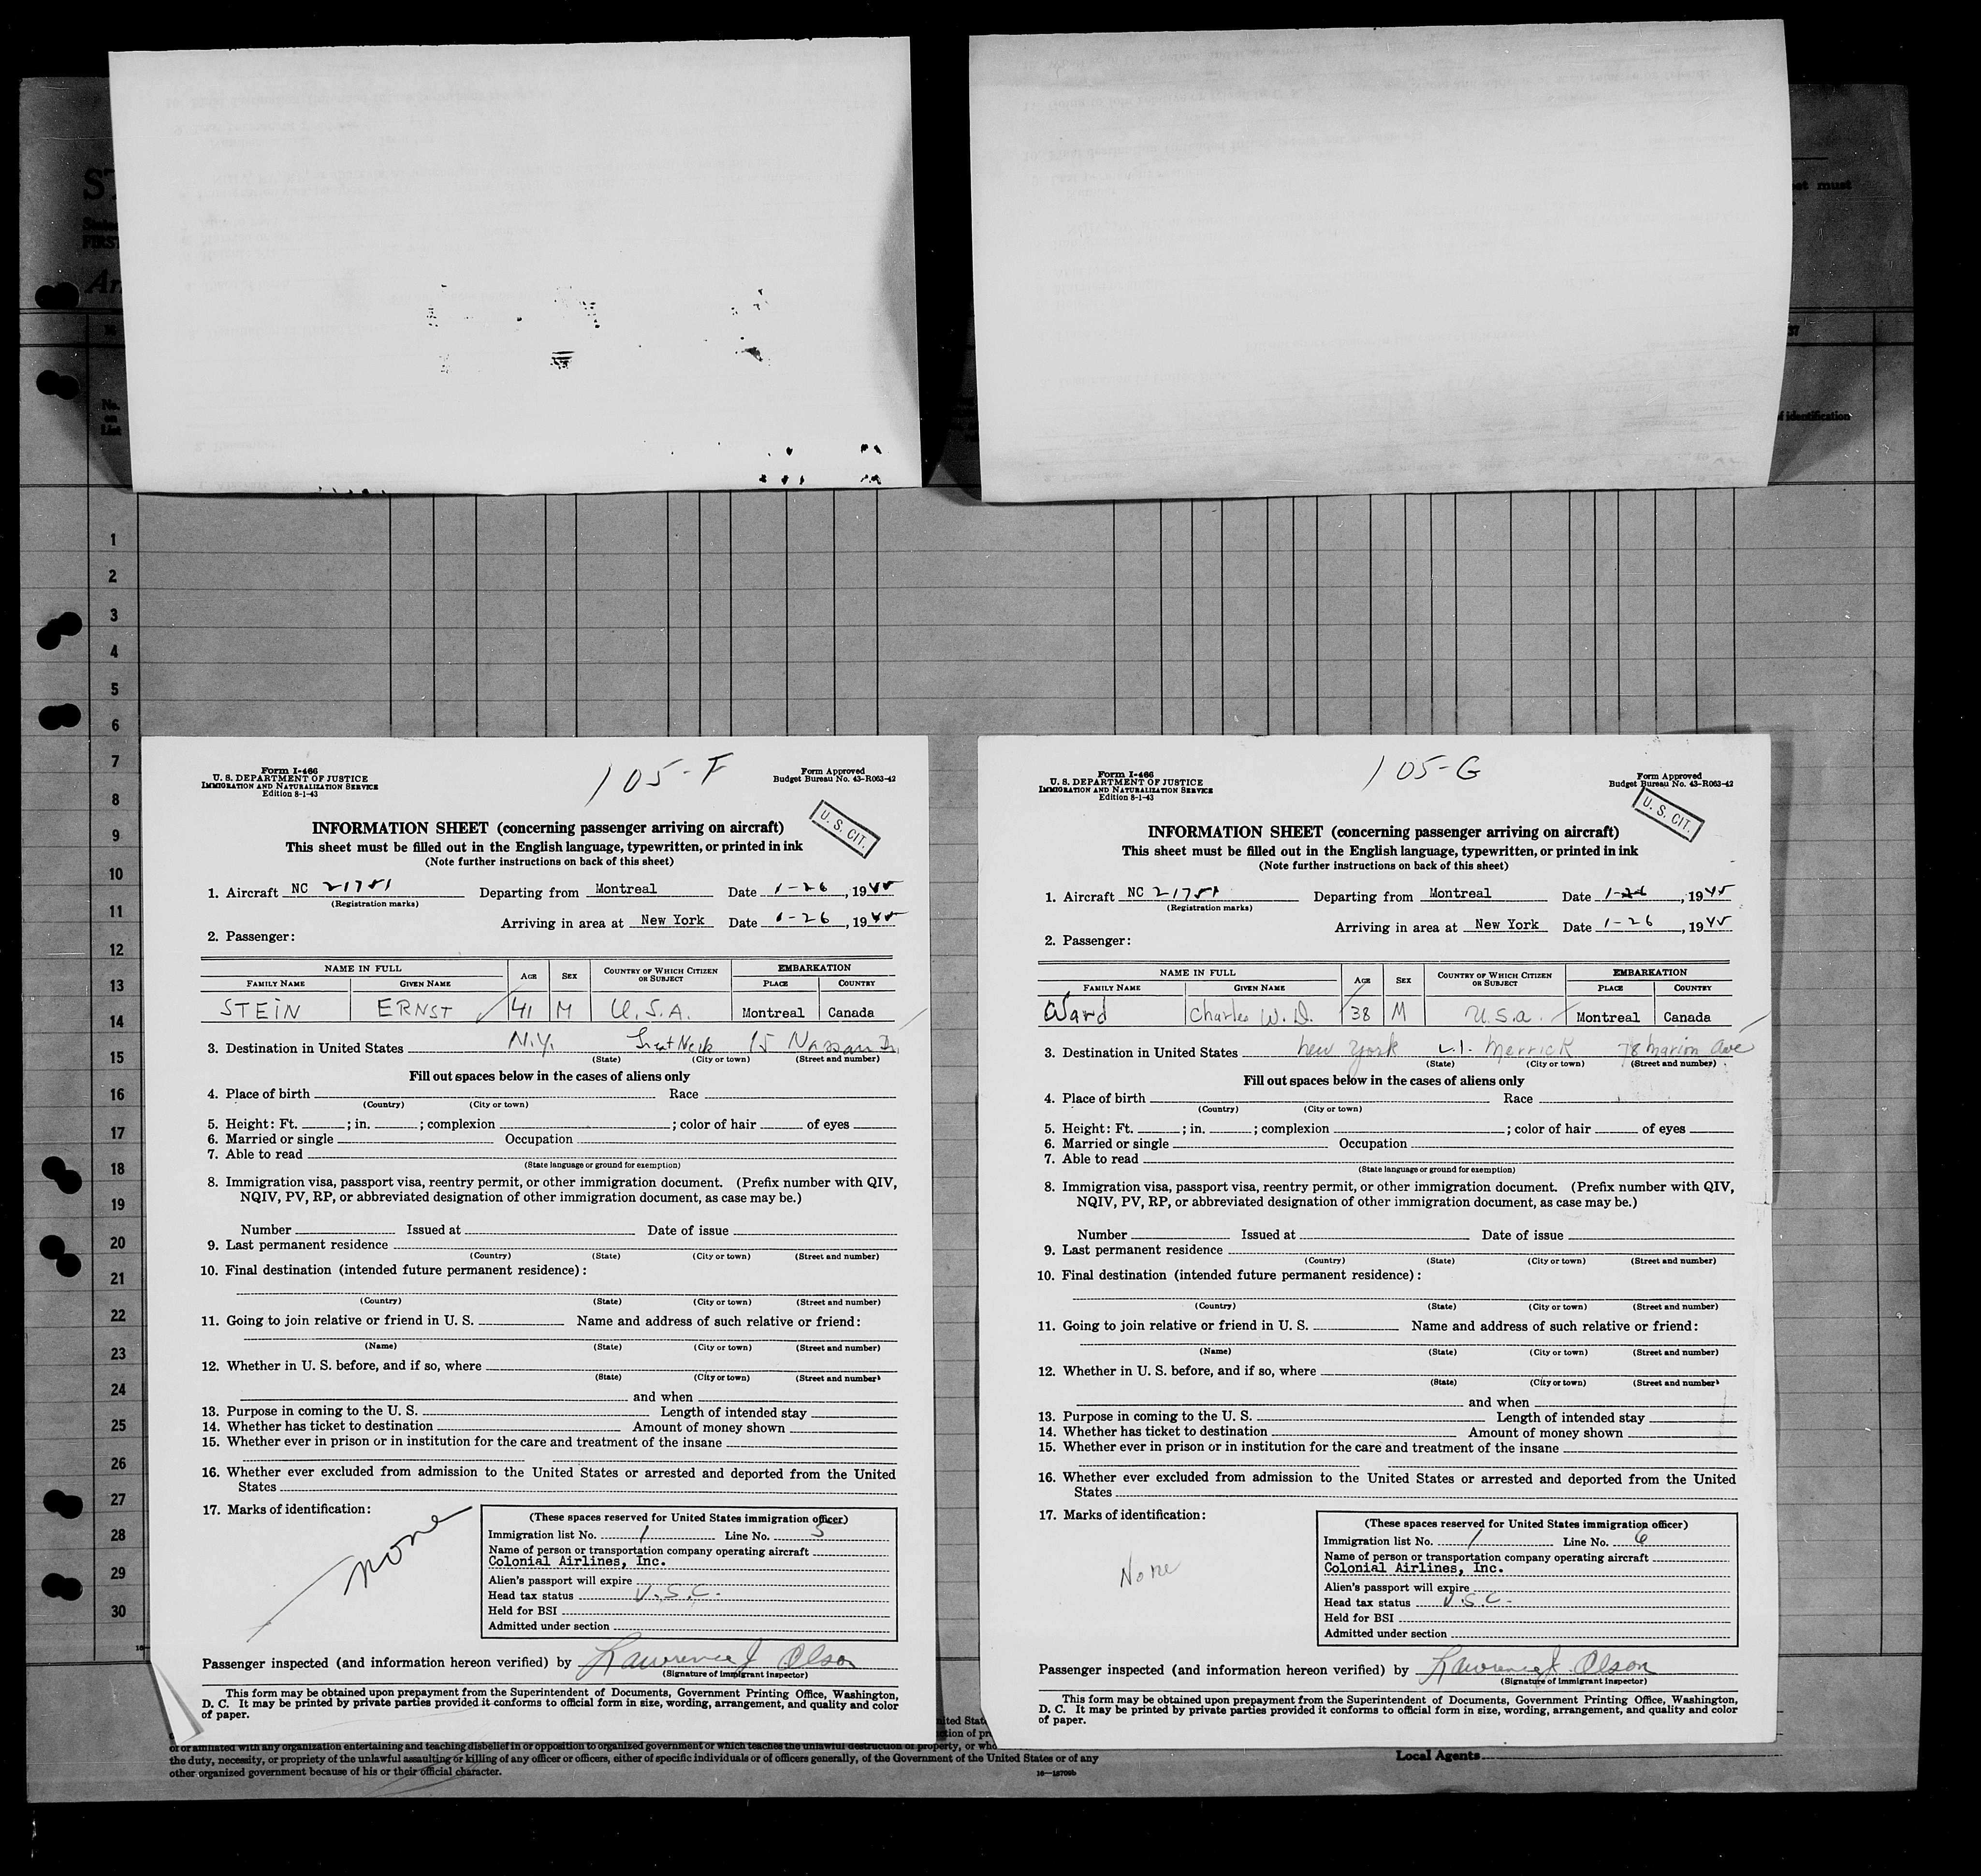 ST
States
FIRST
Arr
et must
37
No.
on
List
of identification
1
2
3
4
5
6
7
8
9
10
11
12
13
14
15
16
17
18
19
20
21
22
23
24
25
26
27
28
29
30
Form I-466
U. S. DEPARTMENT OF JUSTICE
IMMIGRATION AND NATURALIZATION SERVICE
Edition 8-1-43
105-F
Form Approved
Budget Bureau No. 43-R063-42
U. S. CIT.
INFORMATION SHEET (concerning passenger arriving on aircraft)
This sheet must be filled out in the English language, typewritten, or printed in ink
(Note further instructions on back of this sheet)
1. Aircraft NC 21751 Departing from Montreal Date 1-26, 1945
(Registration marks)
Arriving in area at New York Date 1-26, 1945
2. Passenger:
NAME IN FULL AGE SEX COUNTRY OF WHICH CITIZEN OR SUBJECT EMBARKATION
FAMILY NAME GIVEN NAME PLACE COUNTRY
STEIN ERNST 41 M U.S.A. Montreal Canada
3. Destination in United States N.Y. Great Neck 15 Nassau Dr.
(State) (City or town) (Street and number)
Fill out spaces below in the cases of aliens only
4. Place of birth Race
(Country) (City or town)
5. Height: Ft. ; in. ; complexion ; color of hair of eyes
6. Married or single Occupation
7. Able to read
(State language or ground for exemption)
8. Immigration visa, passport visa, reentry permit, or other immigration document. (Prefix number with QIV,
NQIV, PV, RP, or abbreviated designation of other immigration document, as case may be.)
Number Issued at Date of issue
9. Last permanent residence
(Country) (State) (City or town) (Street and number)
10. Final destination (intended future permanent residence):
(Country) (State) (City or town) (Street and number)
11. Going to join relative or friend in U. S. Name and address of such relative or friend:
(Name) (State) (City or town) (Street and number)
12. Whether in U. S. before, and if so, where
(State) (City or town) (Street and number)
and when
13. Purpose in coming to the U. S. Length of intended stay
14. Whether has ticket to destination Amount of money shown
15. Whether ever in prison or in institution for the care and treatment of the insane
16. Whether ever excluded from admission to the United States or arrested and deported from the United
States
17. Marks of identification:
none
(These spaces reserved for United States immigration officer)
Immigration list No. 1 Line No. 5
Name of person or transportation company operating aircraft
Colonial Airlines, Inc.
Alien's passport will expire
Head tax status U.S.C.
Held for BSI
Admitted under section
Passenger inspected (and information hereon verified) by Lawrence J Olson
(Signature of immigrant inspector)
This form may be obtained upon prepayment from the Superintendent of Documents, Government Printing Office, Washington,
D. C. It may be printed by private parties provided it conforms to official form in size, wording, arrangement, and quality and color
of paper.
Form I-466
U. S. DEPARTMENT OF JUSTICE
IMMIGRATION AND NATURALIZATION SERVICE
Edition 8-1-43
105-G
Form Approved
Budget Bureau No. 43-R063-42
U. S. CIT.
INFORMATION SHEET (concerning passenger arriving on aircraft)
This sheet must be filled out in the English language, typewritten, or printed in ink
(Note further instructions on back of this sheet)
1. Aircraft NC 21751 Departing from Montreal Date 1-26, 1945
(Registration marks)
Arriving in area at New York Date 1-26, 1945
2. Passenger:
NAME IN FULL AGE SEX COUNTRY OF WHICH CITIZEN OR SUBJECT EMBARKATION
FAMILY NAME GIVEN NAME PLACE COUNTRY
Ward Charles W. D. 38 M U.S.A. Montreal Canada
3. Destination in United States New York L.I. Merrick 78 Marion Ave
(State) (City or town) (Street and number)
Fill out spaces below in the cases of aliens only
4. Place of birth Race
(Country) (City or town)
5. Height: Ft. ; in. ; complexion ; color of hair of eyes
6. Married or single Occupation
7. Able to read
(State language or ground for exemption)
8. Immigration visa, passport visa, reentry permit, or other immigration document. (Prefix number with QIV,
NQIV, PV, RP, or abbreviated designation of other immigration document, as case may be.)
Number Issued at Date of issue
9. Last permanent residence
(Country) (State) (City or town) (Street and number)
10. Final destination (intended future permanent residence):
(Country) (State) (City or town) (Street and number)
11. Going to join relative or friend in U. S. Name and address of such relative or friend:
(Name) (State) (City or town) (Street and number)
12. Whether in U. S. before, and if so, where
(State) (City or town) (Street and number)
and when
13. Purpose in coming to the U. S. Length of intended stay
14. Whether has ticket to destination Amount of money shown
15. Whether ever in prison or in institution for the care and treatment of the insane
16. Whether ever excluded from admission to the United States or arrested and deported from the United
States
17. Marks of identification:
None
(These spaces reserved for United States immigration officer)
Immigration list No. 1 Line No. 6
Name of person or transportation company operating aircraft
Colonial Airlines, Inc.
Alien's passport will expire
Head tax status U.S.C.
Held for BSI
Admitted under section
Passenger inspected (and information hereon verified) by Lawrence J Olson
(Signature of immigrant inspector)
This form may be obtained upon prepayment from the Superintendent of Documents, Government Printing Office, Washington,
D. C. It may be printed by private parties provided it conforms to official form in size, wording, arrangement, and quality and color
of paper.
or affiliated with any organization entertaining and teaching disbelief in or opposition to organized government or which teaches the unlawful destruction of property, or who
the duty, necessity, or propriety of the unlawful assaulting or killing of any officer or officers, either of specific individuals or of officers generally, of the Government of the United States or of any
other organized government because of his or their official character.
Local Agents